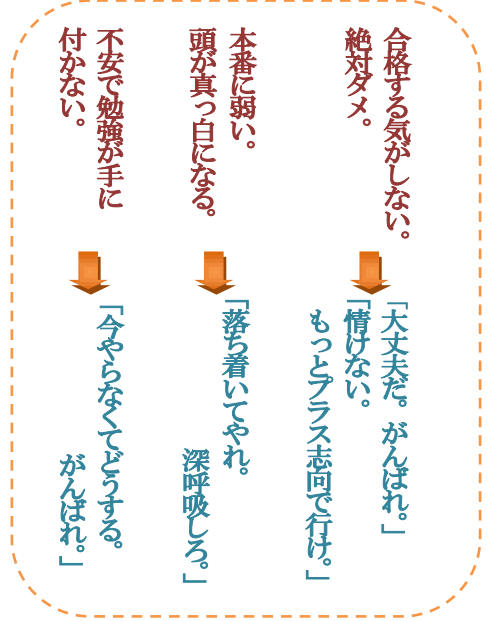 合格する気がしない。
絶対ダメ。
「大丈夫だ。がんばれ。」
「情けない。
もっとプラス志向で行け。」
本番に弱い。
頭が真っ白になる。
「落ち着いてやれ。
深呼吸しろ。」
不安で勉強が手に
付かない。
「今やらなくてどうする。
がんばれ。」